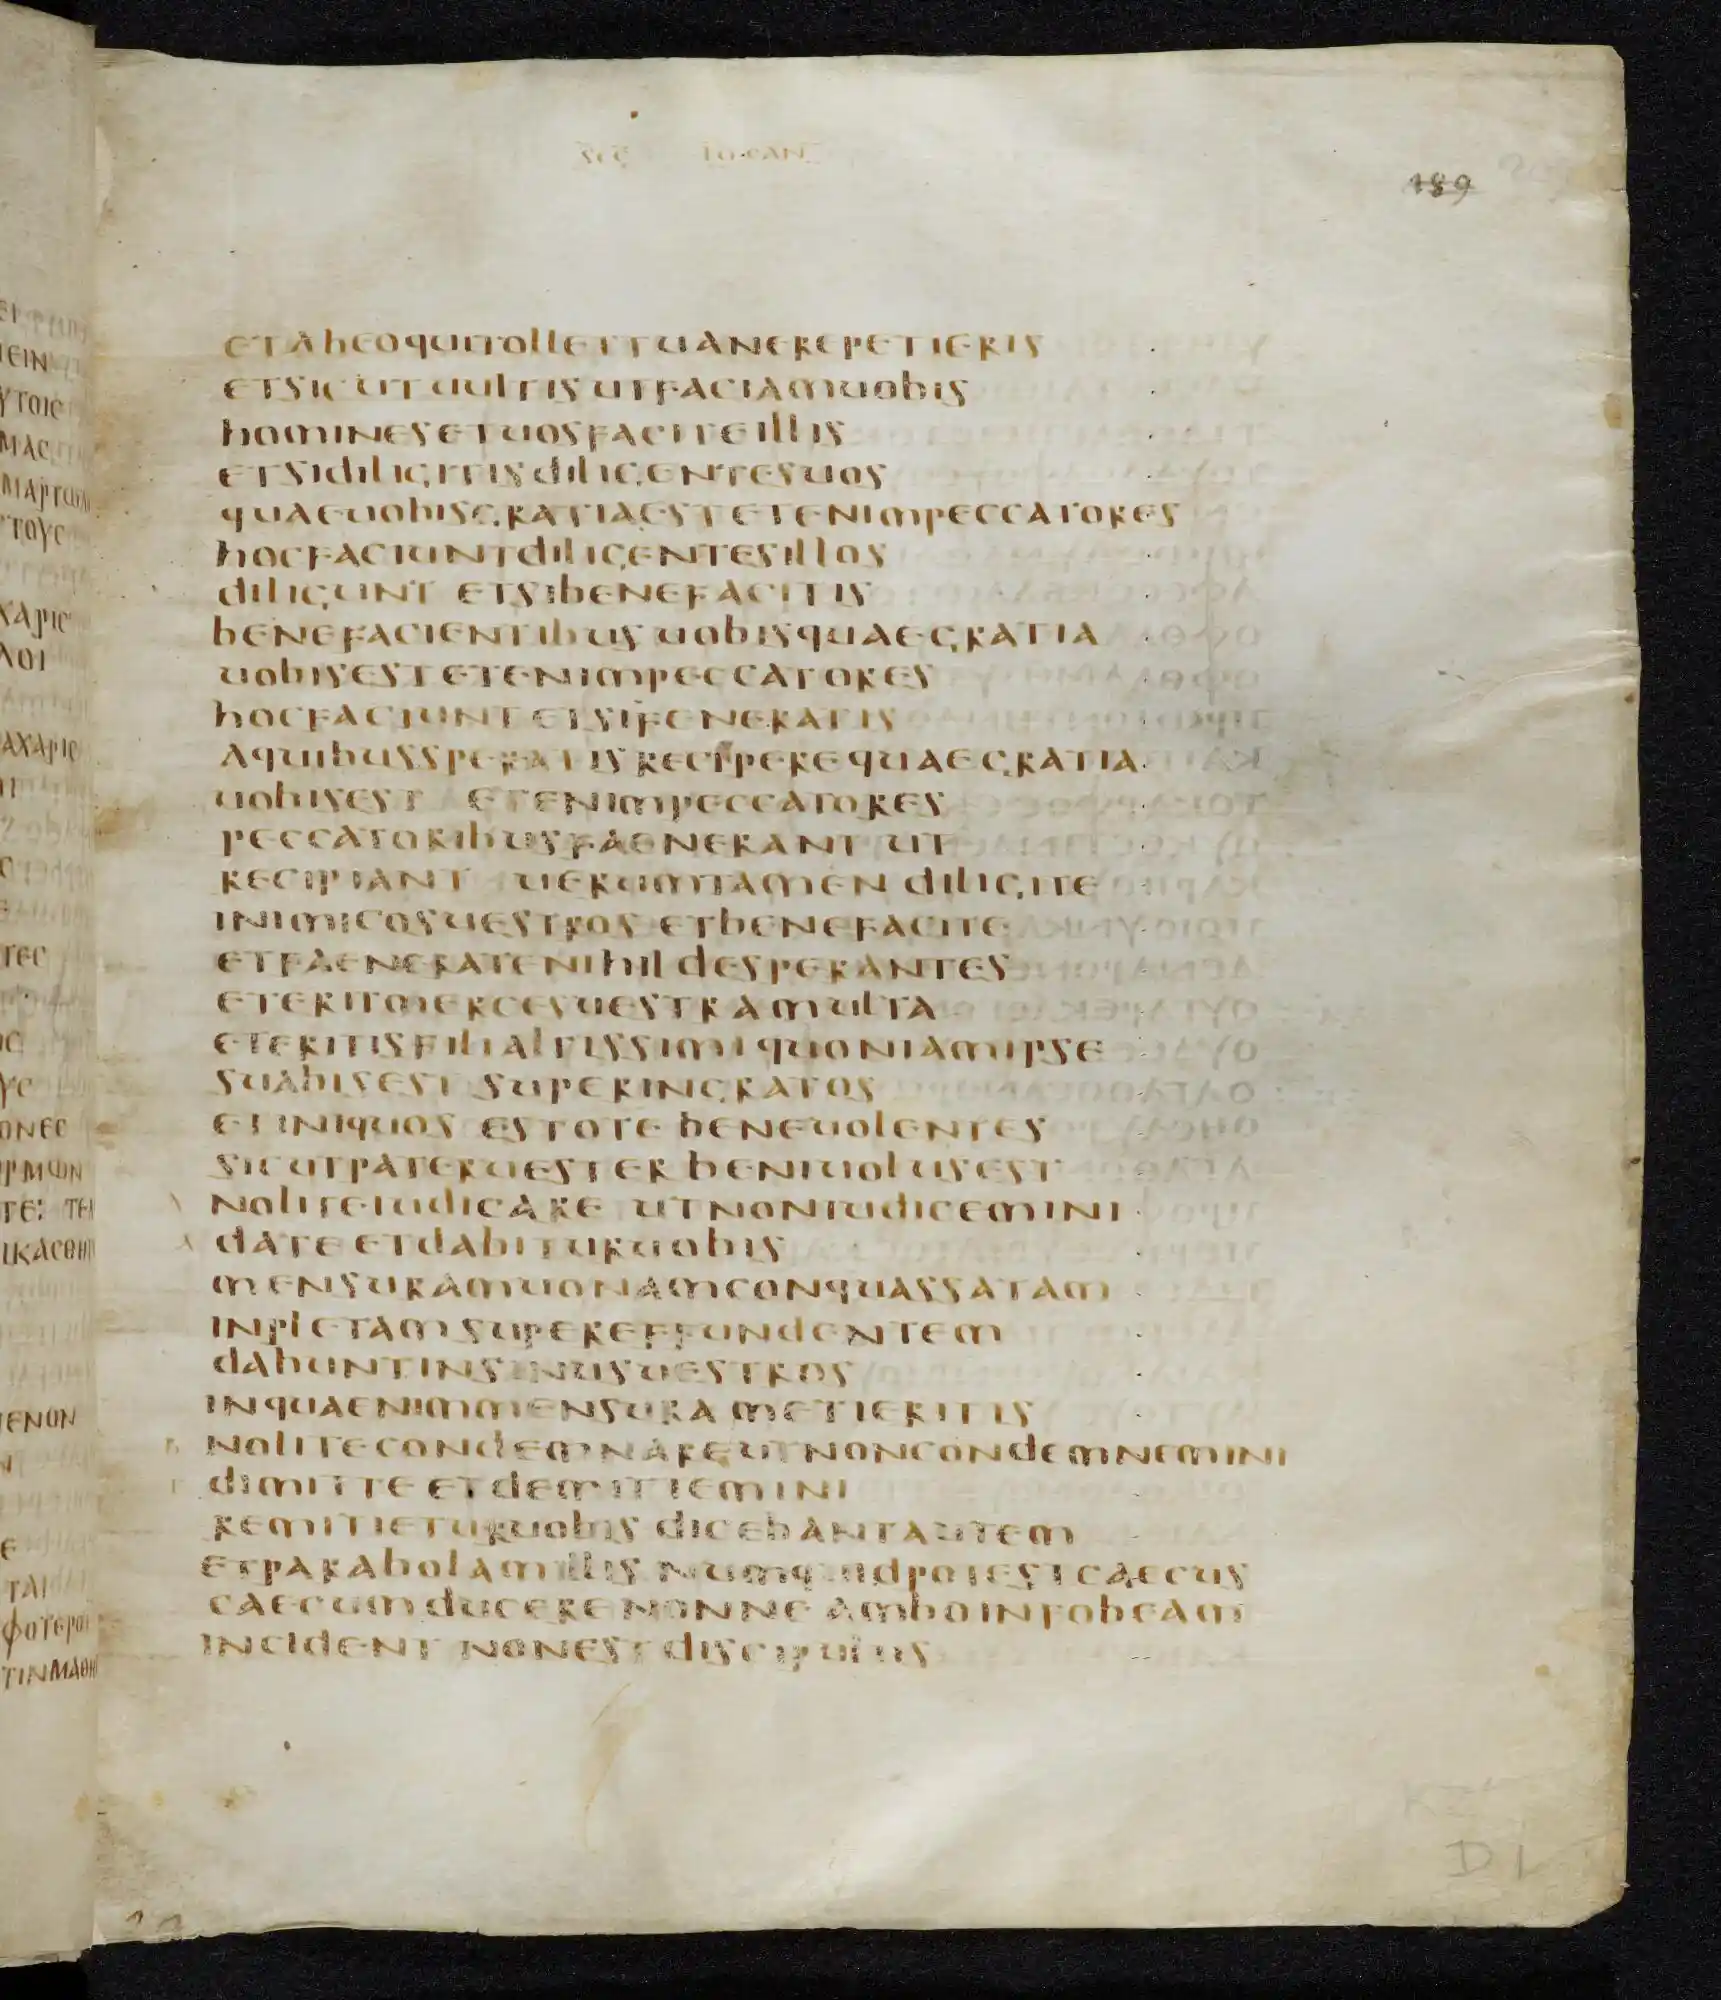 189
ETABEOQUITOLLETTUANEREPETIERIS
ETSICUTUULTISUTFACIAMUOBIS
HOMINESETUOSFACITEILLIS
ETSIDILIGITISDILIGENTESUOS
QUAEUOBISGRATIAESTETENIMPECCATORES
HOCFACIUNTDILIGENTESILLOS
DILIGUNT ETSIBENEFACITIS
BENEFACIENTIBUS UOBISQUAEGRATIA
UOBISESTETENIMPECCATORES
HOCFACIUNT ETSIFENERATIS
AQUIBUSSPERATISRECIPEREQUAEGRATIA
UOBISEST ETENIMPECCATORES
PECCATORIBUSFAENERANT UT
RECIPIANT UERUMTAMEN DILIGITE
INIMICOSUESTROS ETBENEFACITE
ETFAENERATENIHIL DESPERANTES
ETERITMERCESUESTRAMULTA
ETERITISFILIALTISSIMI QUONIAMIPSE
SUABISEST SUPERINGRATOS
ETINIQUOS ESTOTE BENEUOLENTES
SICUTPATERUESTER BENIUOLUSEST
NOLITEIUDICARE UTNONIUDICEMINI
DATE ETDABITURUOBIS
MENSURAMUONAMCONQUASSATAM
INPLETAMSUPEREFFUNDENTEM
DABUNTINSINUSUESTROS
INQUAENIMMENSURA METIERITIS
NOLITECONDEMNAREUTNONCONDEMNEMINI
DIMITTE ETDEMITTEMINI
REMITTETURUOBIS DICEBANTAUTEM
ETPARABOLAMILLIS NUMQUIDPOTESTCAECUS
CAECUMDUCERENONNE AMBOINFOBEAM
INCIDENT NONEST DISCIPULUS